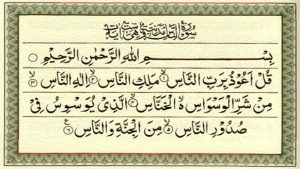 سُورَةُ النَّاسِ مَدَنِيَّةٌ وَهِيَ
بِسْمِ اللهِ الرَّحْمٰنِ الرَّحِيْمِ ○
قُلْ اَعُوْذُ بِرَبِّ النَّاسِ ۙ١ مَلِكِ النَّاسِ ۙ٢ اِلٰهِ النَّاسِ ۙ٣
مِنْ شَرِّ الْوَسْوَاسِ ۙ الْخَنَّاسِ ۙ٤ الَّذِيْ يُوَسْوِسُ فِيْ
صُدُوْرِ النَّاسِ ۙ٥ مِنَ الْجِنَّةِ وَالنَّاسِ ٦